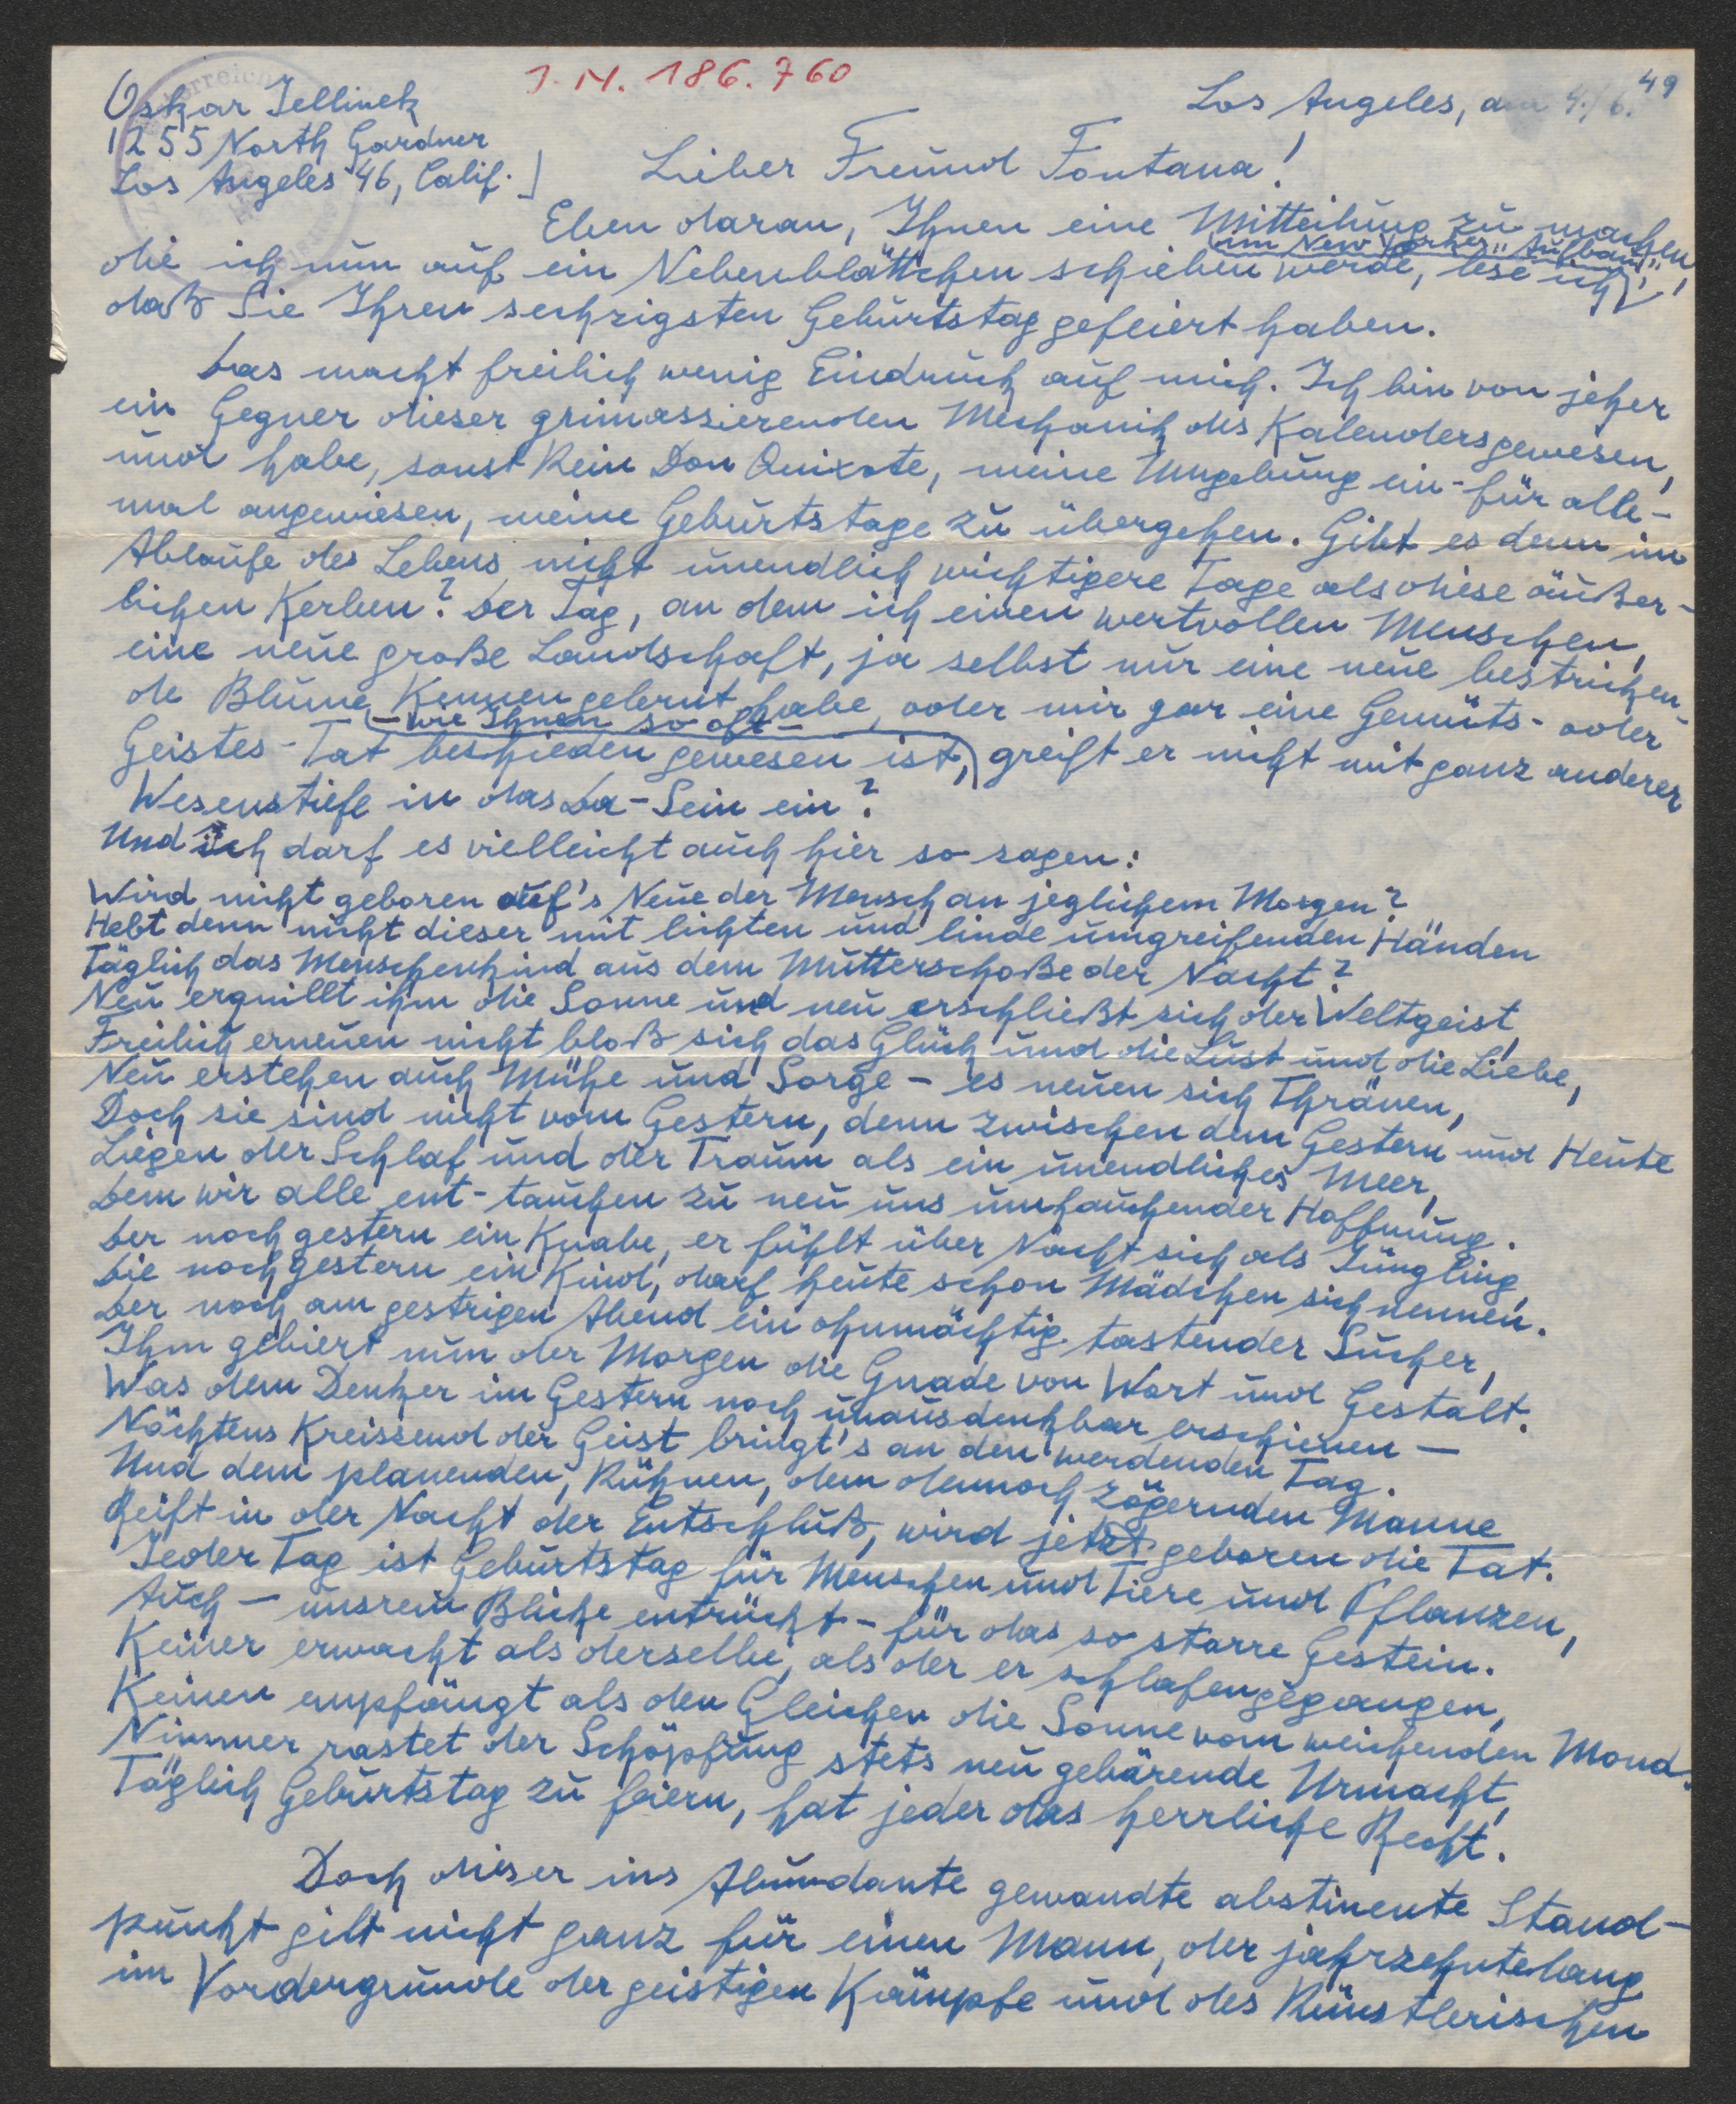 J. N. 186.760
Oskar Jellinek
1255 North Gardner
Los Angeles 46, Calif.
Los Angeles, am 4./6. 49
Lieber Freund Fontana!
Eben daran, Ihnen eine Mitteilung zu machen,
die ich nun auf ein Nebenblättchen schieben werde, lese ich im New Yorker „Aufbau",
daß Sie Ihren sechzigsten Geburtstag gefeiert haben.
Das macht freilich wenig Eindruck auf mich. Ich bin von jeher
ein Gegner dieser grimassierenden Mechanik des Kalenders gewesen,
und habe, sonst kein Don Quixote, meine Umgebung ein-für alle-
mal angewiesen, meine Geburtstage zu übergehen. Gibt es denn im
Ablaufe des Lebens nicht unendlich wichtigere Tage als diese äußer-
lichen Kerben? Der Tag, an dem ich einen wertvollen Menschen,
eine neue große Landschaft, ja selbst nur eine neue bestricken-
de Blume kennen gelernt habe, oder mir gar eine Gemüts- oder
Geistes-Tat – wie Ihnen so oft – beschieden gewesen ist, greift er nicht mit ganz anderer
Wesenstiefe in das Da-Sein ein?
Und ich darf es vielleicht auch hier so sagen:
Wird nicht geboren auf's Neue der Mensch an jeglichem Morgen?
Hebt denn nicht dieser mit lichten und linde umgreifenden Händen
Täglich das Menschenkind aus dem Mutterschoße der Nacht?
Neu erquillt ihm die Sonne und neu erschließt sich der Weltgeist,
Freilich erneuen nicht bloß sich das Glück und die Lust und die Liebe,
Neu erstehen auch Mühe und Sorge – es neuen sich Thränen,
Doch sie sind nicht vom Gestern, denn zwischen dem Gestern und Heute
Liegen der Schlaf und der Traum als ein unendliches Meer,
Dem wir alle ent-tauchen zu neu uns umhauchender Hoffnung.
Der noch gestern ein Knabe, er fühlt über Nacht sich als Jüngling,
Die noch gestern ein Kind, darf heute schon Mädchen sich nennen.
Der noch am gestrigen Abend ein ohnmächtig tastender Sucher,
Ihm gebiert nun der Morgen die Gnade von Wort und Gestalt.
Was dem Denker im Gestern noch unausdenkbar erschienen –
Nächtens kreissend der Geist bringt's an den werdenden Tag.
Und dem planenden, kühnen, dem dennoch zögernden Manne
Reift in der Nacht der Entschluß, wird jetzt geboren die Tat.
Jeder Tag ist Geburtstag für Menschen und Tiere und Pflanzen,
Auch – unsrem Blicke entrückt – für das so starre Gestein.
Keiner erwacht als derselbe, als der er schlafen gegangen,
Keinen empfängt als den Gleichen die Sonne vom weichenden Mond.
Nimmer rastet der Schöpfung stets neu gebärende Urmacht,
Täglich Geburtstag zu feiern, hat jeder das herrliche Recht.
Doch dieser ins Abundante gewandte abstinente Stand-
punkt gilt nicht ganz für einen Mann, der jahrzehntelang
im Vordergrunde der geistigen Kämpfe und des künstlerischen